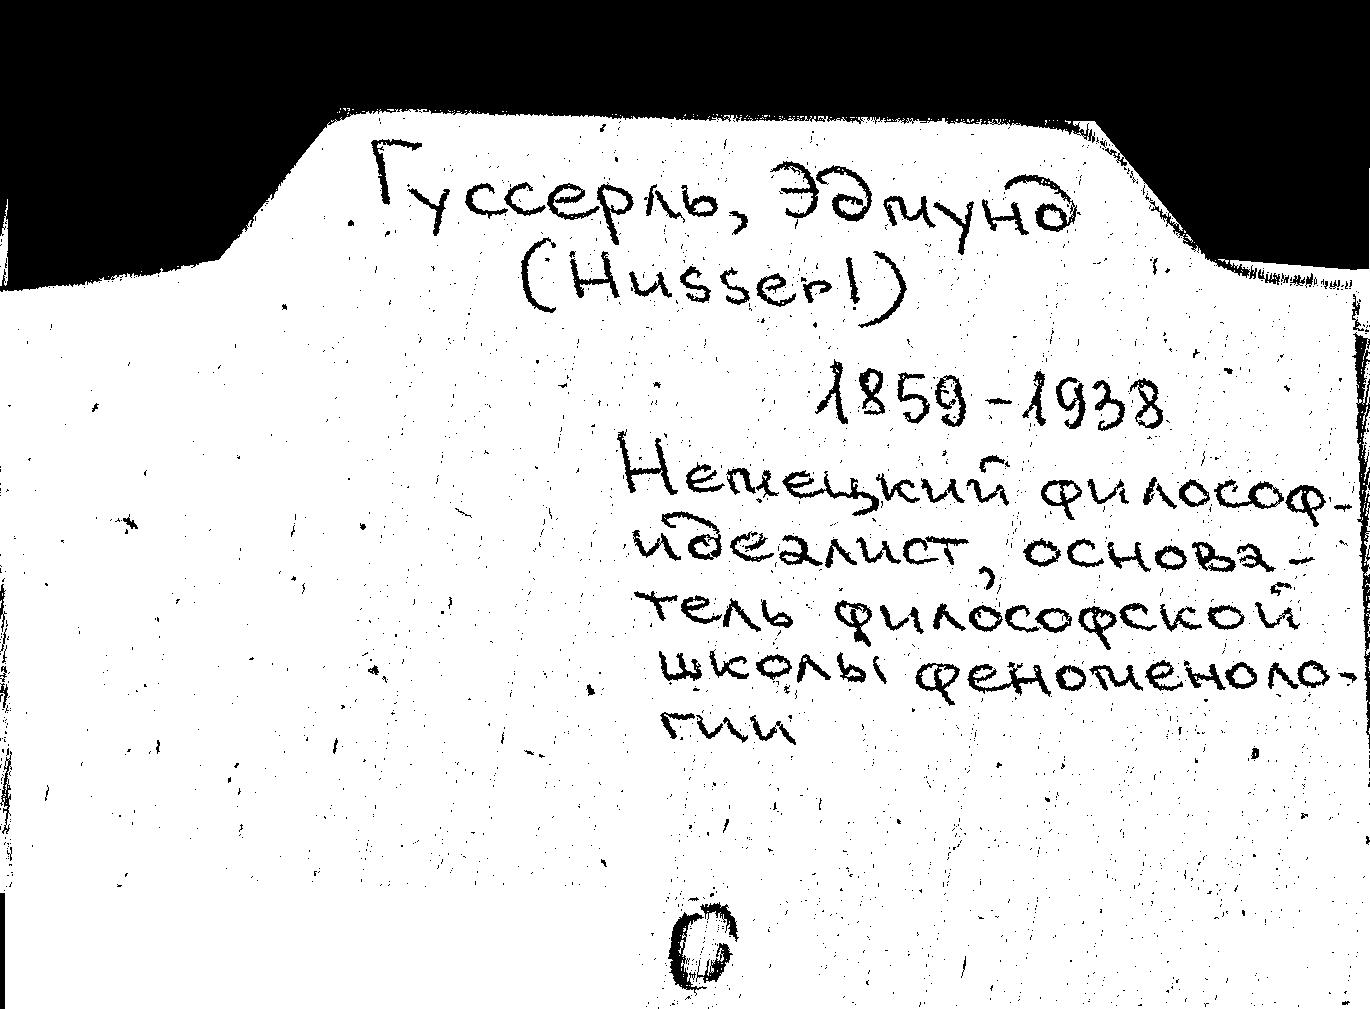 Гуссерль, Эдмунд
(Husserl)
1859-1938
Немецкий философ-
идеалист, основа-
тель философской
школы феноменоло-
гии